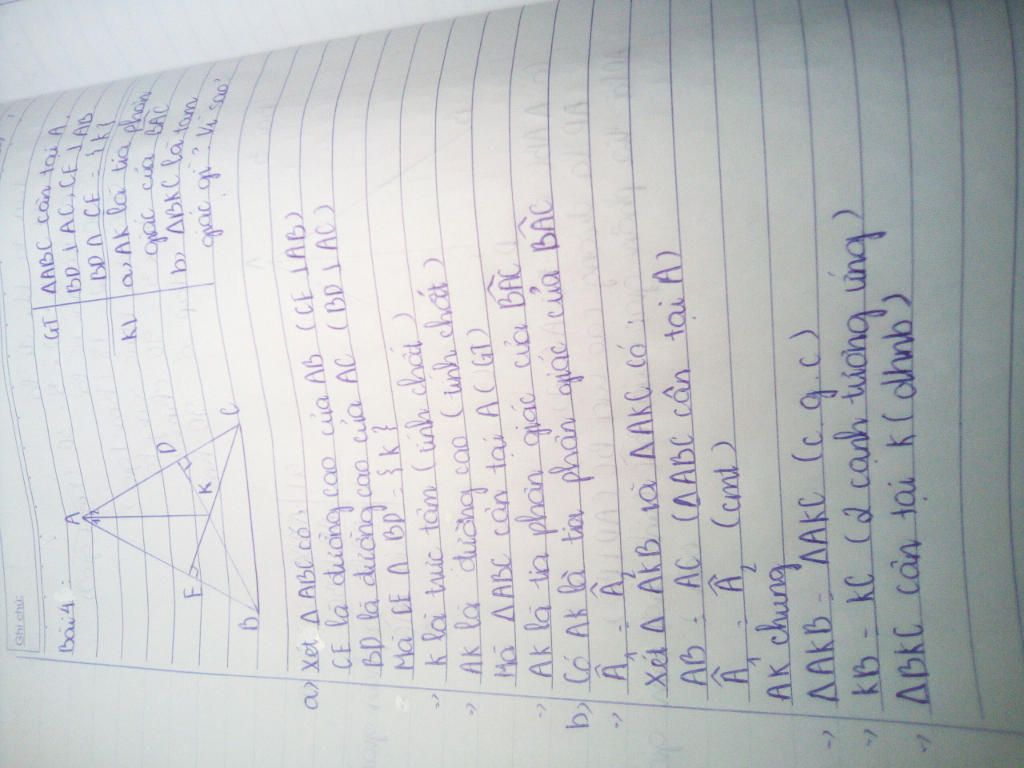 Ghi chú:
Bài 4:
A
E
D
K
B
C
GT
ΔABC cân tại A
BD ⊥ AC, CE ⊥ AB
BD ∩ CE = {K}
KL
a) AK là tia phân
giác của BAC
b) ΔBKC là tam
giác gì? Vì sao?
a) Xét Δ ABC có:
CE là đường cao của AB (CE ⊥ AB)
BD là đường cao của AC (BD ⊥ AC)
Mà CE ∩ BD = {K}
=> K là trực tâm (tính chất)
=> AK là đường cao (tính chất)
Mà ΔABC cân tại A (GT)
=> AK là tia phân giác của BAC
b) Có AK là tia phân giác của BAC
=> Â1 = Â2
Xét Δ AKB và ΔAKC có:
AB = AC (ΔABC cân tại A)
Â1 = Â2 (cmt)
AK chung
=> ΔAKB = ΔAKC (c g c)
=> KB = KC (2 cạnh tương ứng)
=> ΔBKC cân tại K (dhnb)